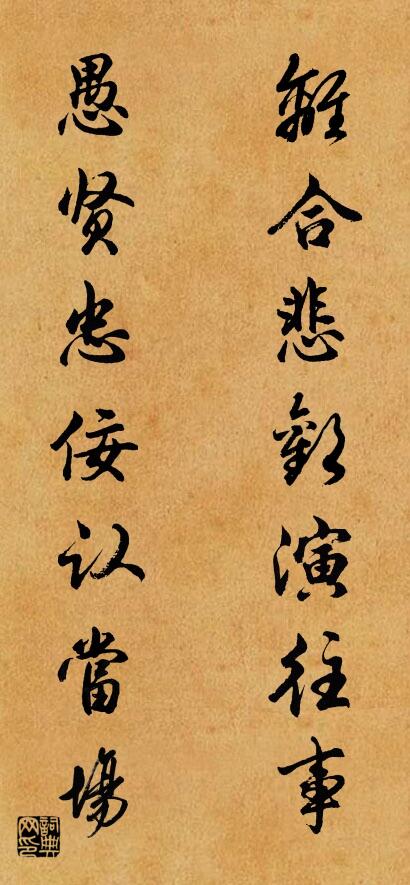 離合悲歡演往事
愚贤忠佞认當場
詞典网印